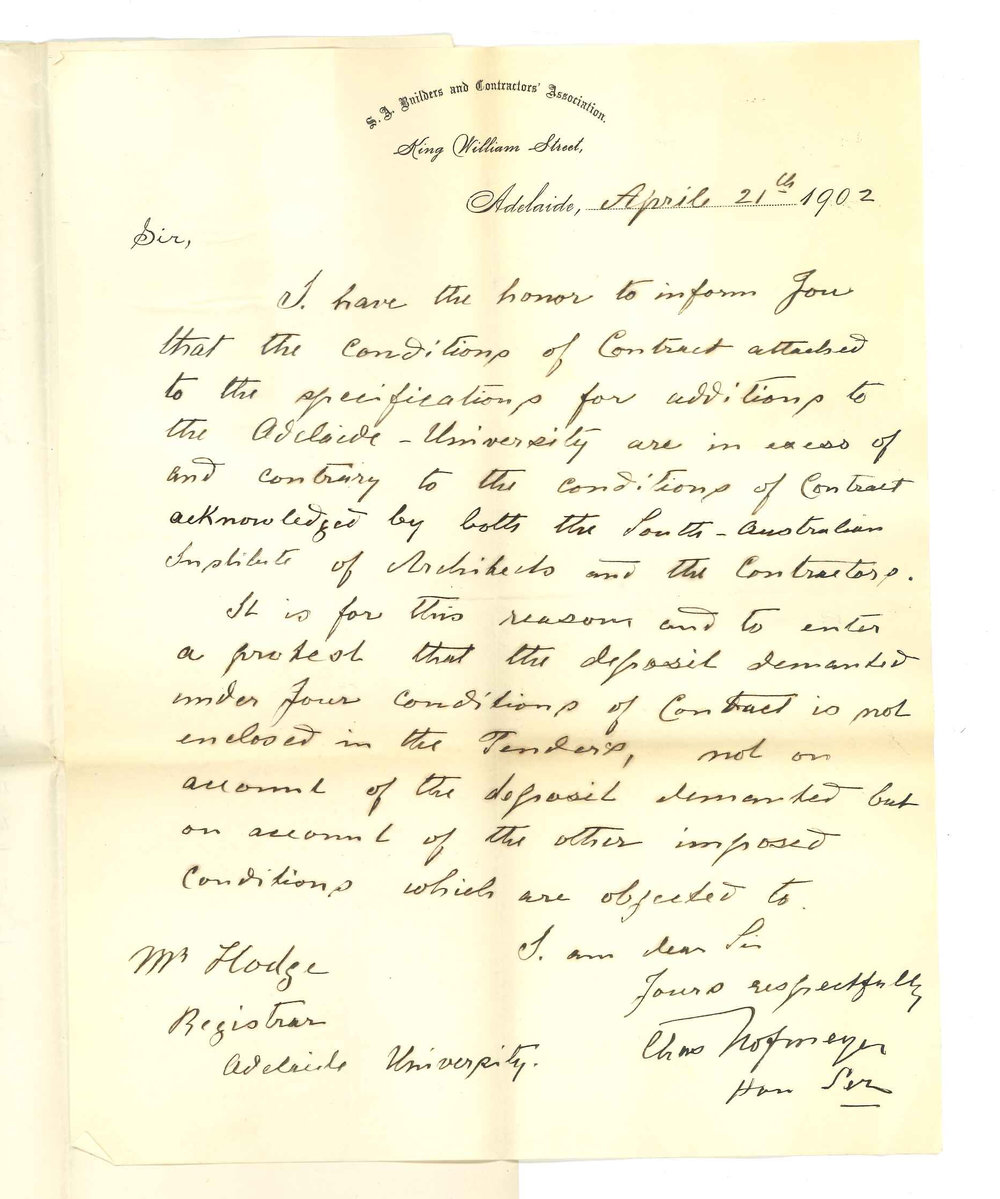 S. A. Builders and Contractors' Association.
King William Street,
Adelaide, April 21th 1902
Sir,
I. have the honor to inform You
that the Conditions of Contract attached
to the specifications for additions to
the Adelaide - University are in exess of
and contrary to the conditions of Contract
acknowledged by both the South - Australian
Institute of Architects and the Contractors.
It is for this reason and to enter
a protest that the deposit demanted
under Your conditions of Contract is not
enclosed in the Tenders, not on
account of the deposit demanted but
on account of the other imposed
Conditions which are objected to.
I. am dear Sir
Yours respectfully
Chas Hofmeyer
Hon Ser
Mr Hodge
Registrar
Adelaide University.